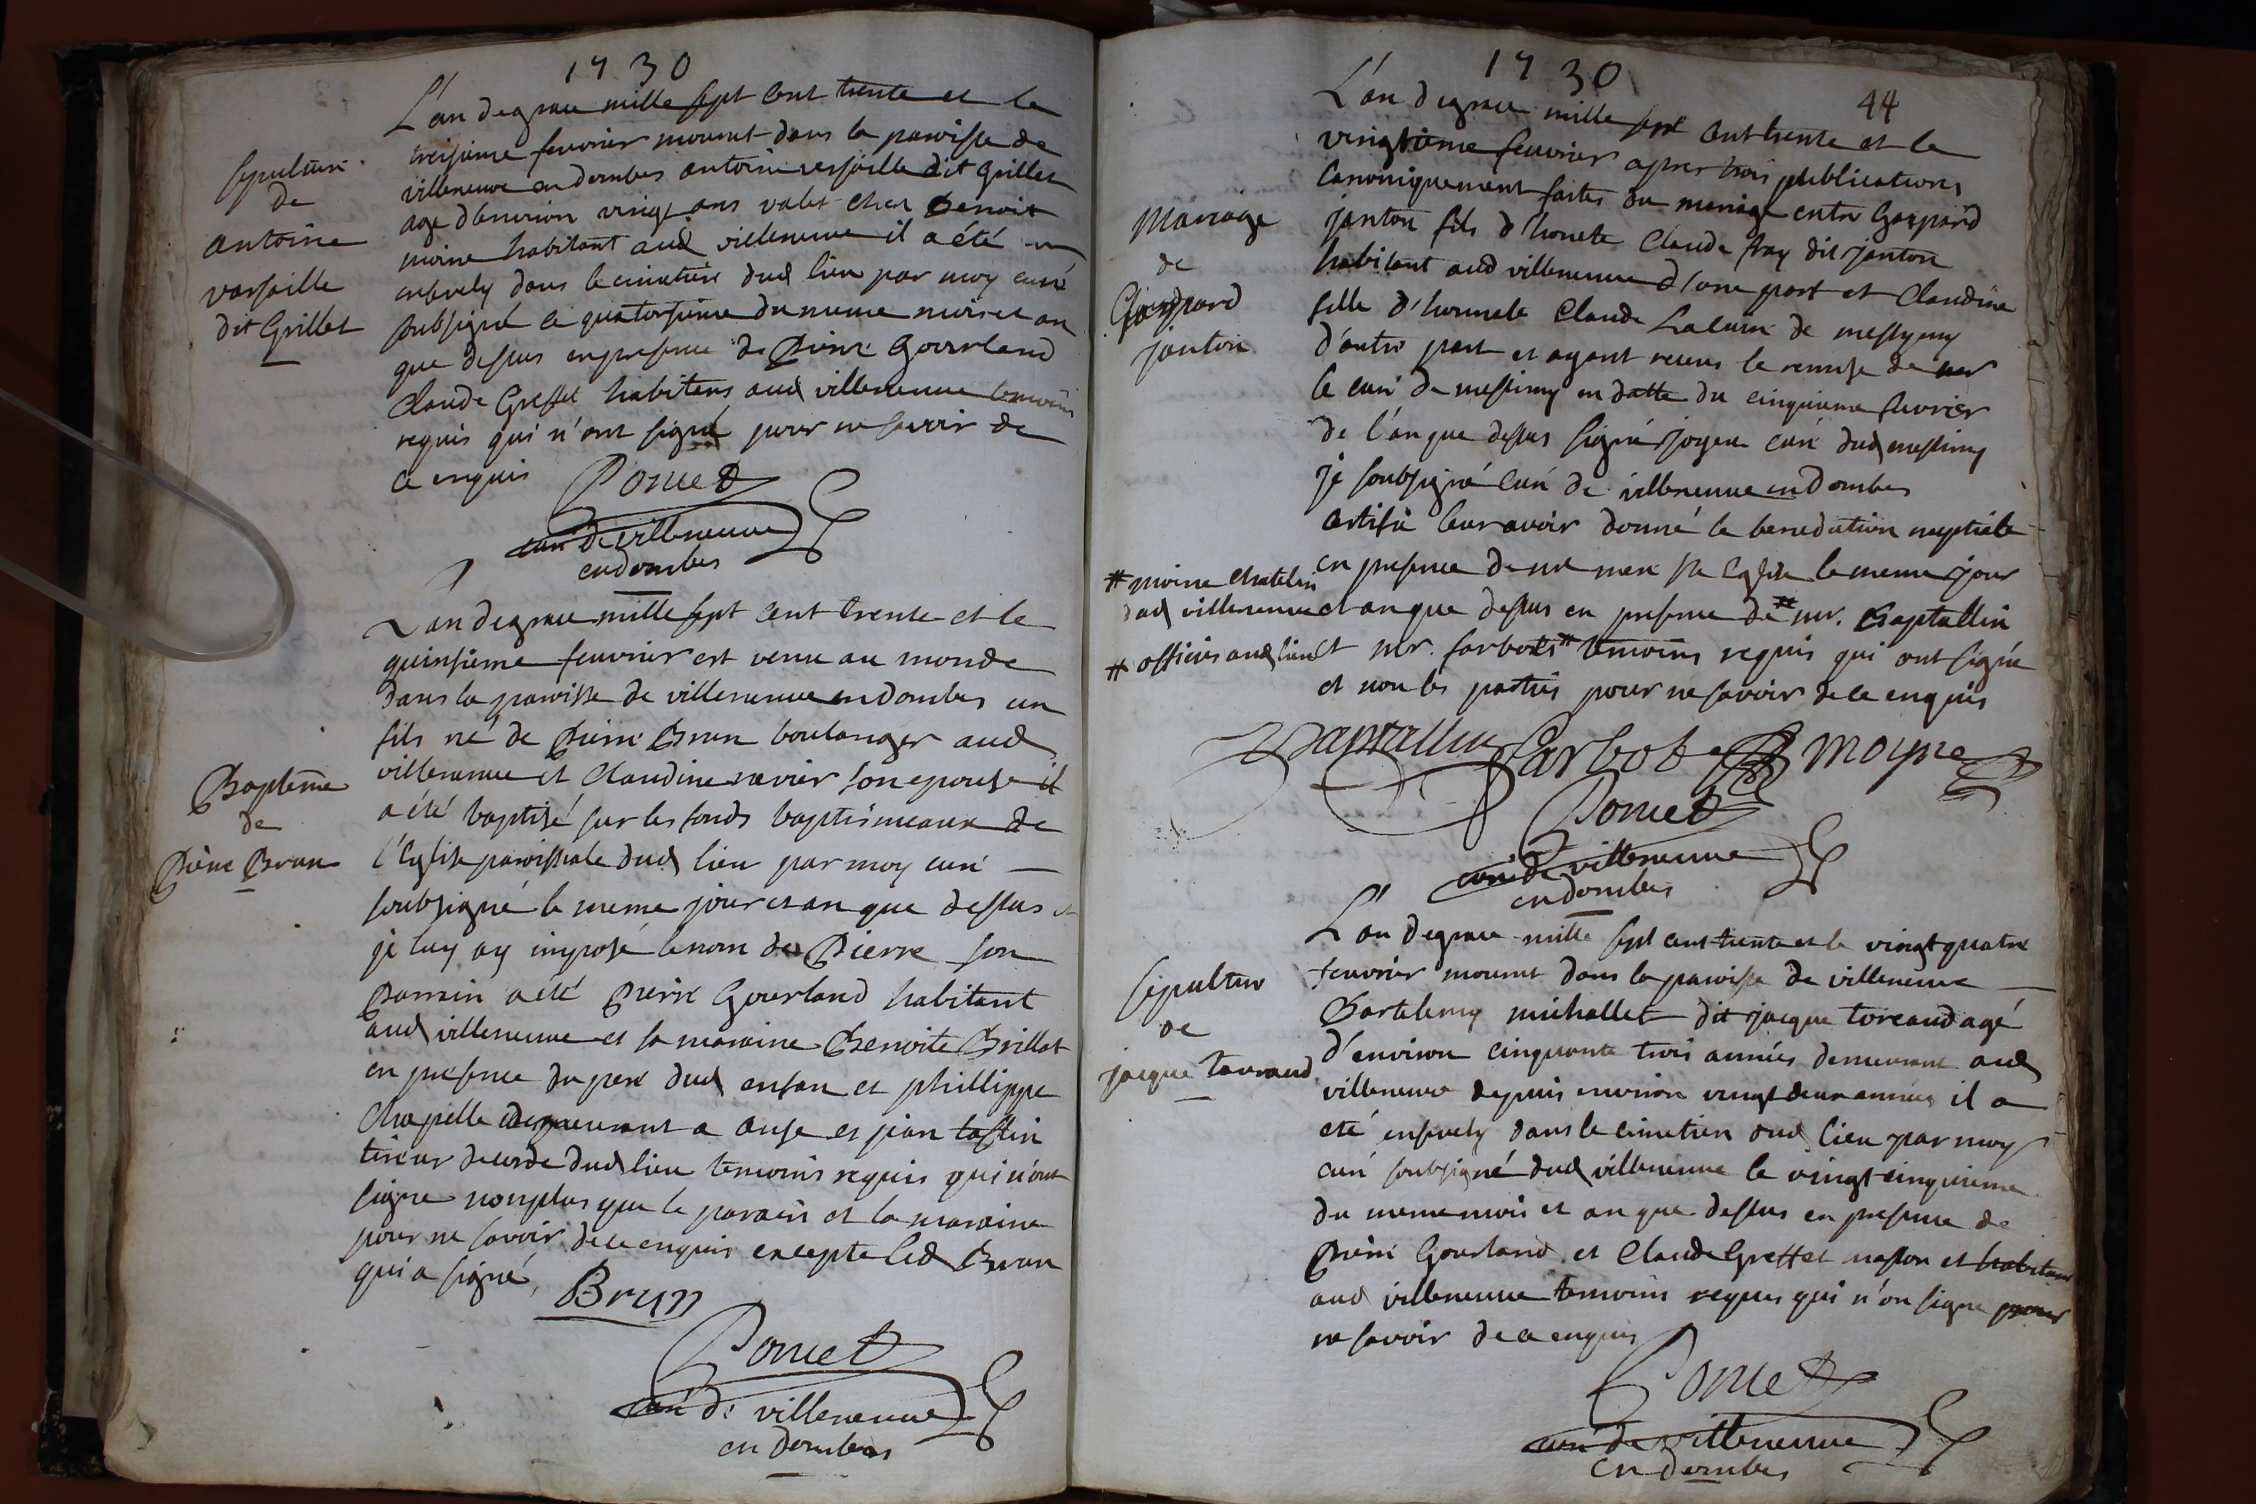 1730
L'an de grace mille sept cent trente et le
treisieme feuvrier mourut dans la paroisse de
villeneuve en dombes antoine versaille dit grillet
age d'environ vingt ans valet chez Benoit
moine habitant aud villeneuve il a été
ensevely dans le cimetiere dud lieu par moy curé
soubsigné le quatorsieme du meme mois et an
que dessus en presence de Pierre Gourland
Claude Greffet habitans aud villeneuve temoins
requis qui n'ont signé pour ne savoir de
ce enquis
Pomet
curé de villeneuve
en dombes
Sepulture
de
antoine
varsaille
dit Grillet
L'an de grace mille sept cent trente et le
quinsieme feuvrier est venu au monde
dans la paroisse de villeneuve en dombes un
fils né de Pierre Brun boulanger aud
villeneuve et Claudine ravier son epouse il
a été baptisé sur les fonds baptismeaux de
l'Eglise paroissiale dud lieu par moy curé
soubsigné le meme jour et an que dessus et
je luy ay imposé le nom de Pierre son
Parrain a été Pierre Gourland habitant
aud villeneuve et sa maraine Benoite Brillat
en presence du pere dud enfan et phillippe
Chapelle demeurant a anse et jean tastin
tireur de corde dud lieu temoins requis qui n'ont
signe non plus que le parain et la maraine
pour ne savoir de ce enquis excepte led Brun
qui a signé,
Brun
Pomet
curé de villeneuve
en dombes
Baptême
de
Pierre Brun
1730
44
L'an de grace mille sept cent trente et le
vingtieme feuvrier apres trois publications
Canoniquement faites du mariage entre Gaspard
janton fils d'honete Claude fray dit janton
habitant aud villeneuve d'une part et Claudine
fille d'honnete Claude Lalune de messymy
d'autre part et ayant receu le remise de mr
le curé de messimy en datte du cinquieme fuvrier
de l'an que dessus signé joyeu curé dud messimy
je soubsigné Curé de villeneuve en Dombes
Certifie leur avoir donné la benediction nuptiale
en presence de nre mere ste Eglise le meme jour
et an que dessus en presence de # mr. Captallin
et mr. farbot # temoins requis qui ont signé
et non les parties pour ne savoir de ce enquis
# moine chatelin
dud villeneuve
# officiers aud lieu
Captallin farbot Moyne
Pomet
curé de villeneuve
en dombes
Mariage
de
Gaspard
janton
L'an de grace mille sept cent trente et le vingt quatre
feuvrier mourut dans la paroisse de villeneuve
Bartelemy michallet dit jacque toreaud agé
d'environ cinquante trois années demeurant aud
villeneuve depuis environ vingt deux années il a
eté ensevely dans le cimetiere dud lieu par moy
curé soubsigné dud villeneuve le vingt cinquieme
du meme mois et an que dessus en presence de
Pierre Gourland et Claude Greffet masson et habitans
aud villeneuve temoins requis qui n'on signe pour
ne savoir de ce enquis
Pomet
curé de villeneuve
en dombes
Sepulture
de
jacque